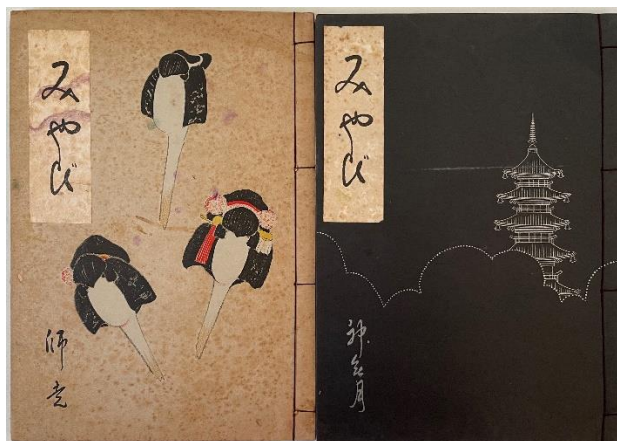 みやび
師走
みやび
神無月